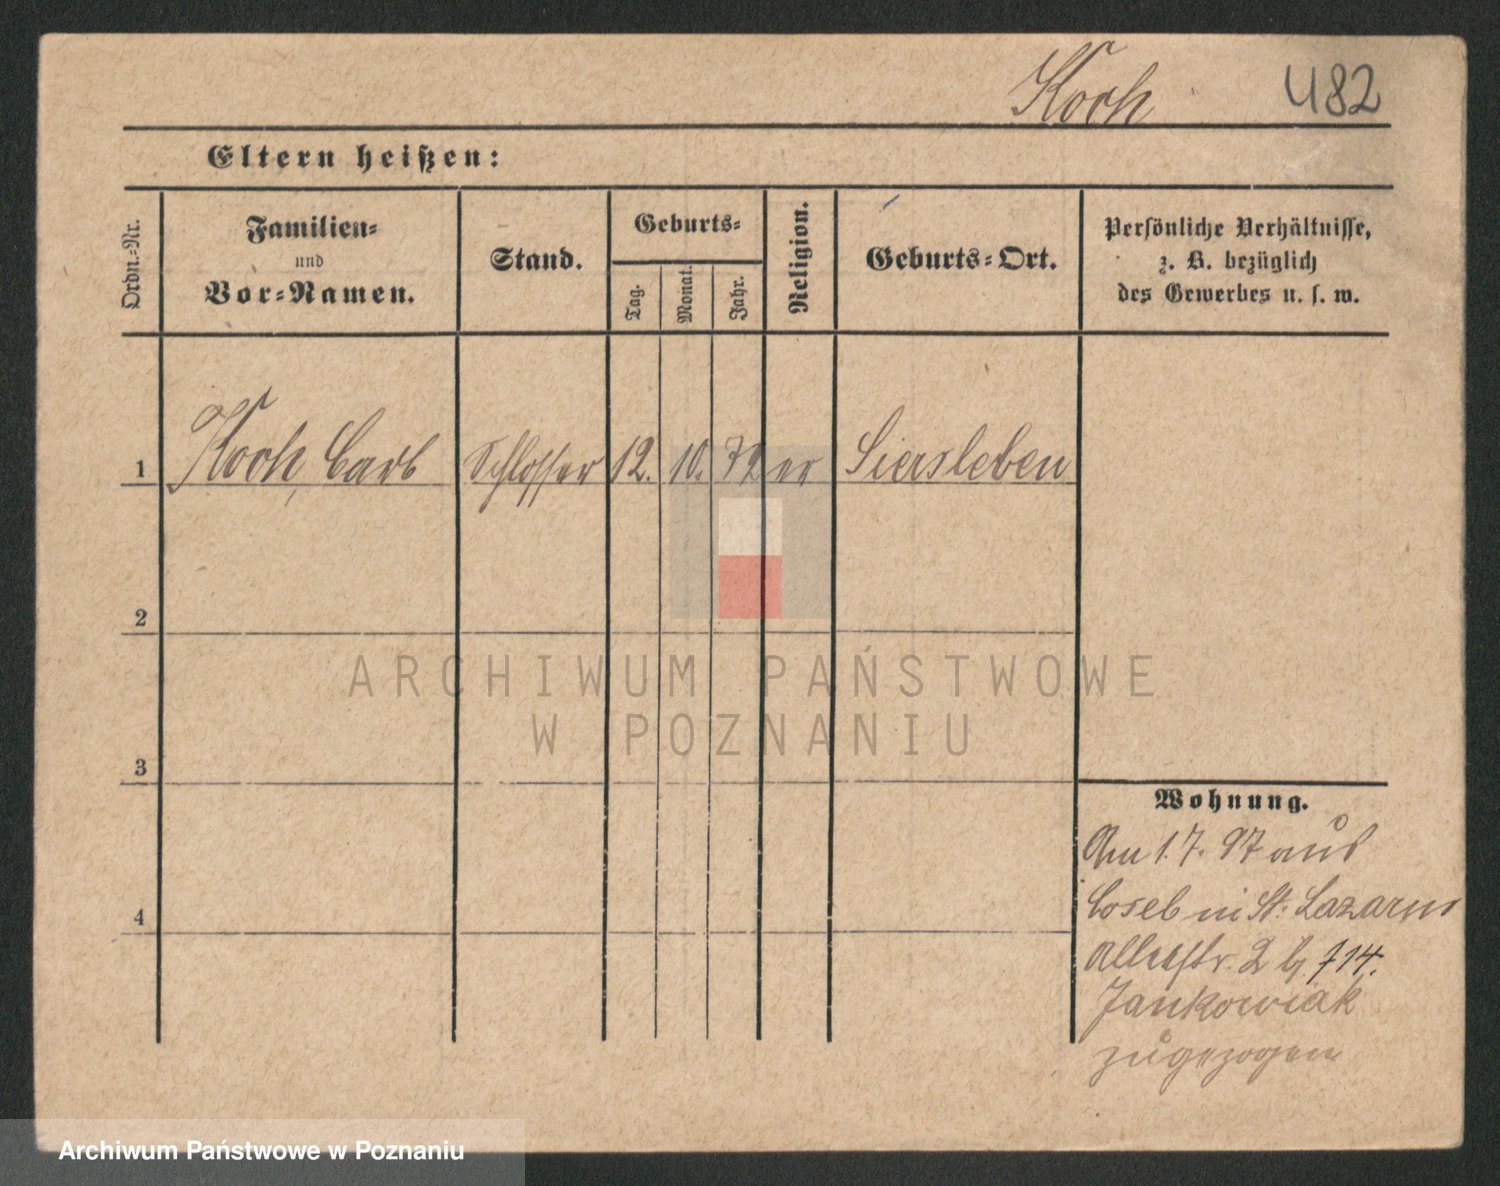 Koch 482
Eltern heißen:
Ordn.=Nr.
Familien=
und
Vor=Namen.
Stand.
Geburts=
Tag.
Monat.
Jahr.
Religion.
Geburts=Ort.
Persönliche Verhältnisse,
z. B. bezüglich
des Gewerbes u. s. w.
1 Koch, Carl Schlosser 12. 10. 72 ev Siersleben
2
3
4
Wohnung.
Am 1.7.97 aus
Cosel in St. Lazarus
2 b. 714.
Jankowiak
zugezogen
ARCHIWUM PAŃSTWOWE
W POZNANIU
Archiwum Państwowe w Poznaniu